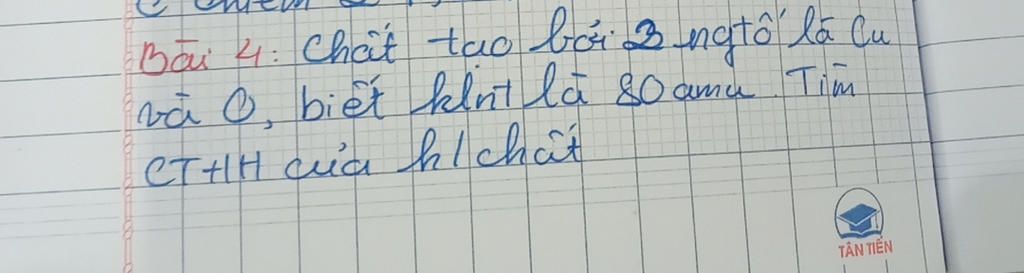 Bài 4: Chất tạo bởi 2 ngtố là Cu
và O, biết klnt là 80 amu. Tìm
CTHH của h/chất
TÂN TIẾN